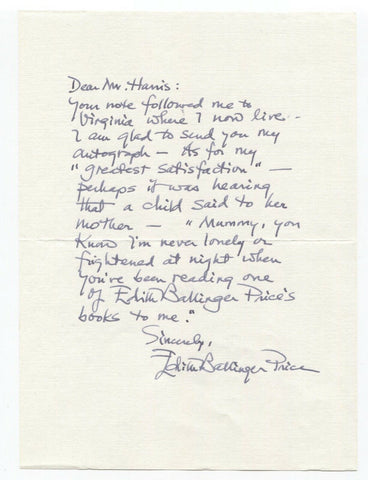 Dear Mr. Harris:
Your note followed me to
Virginia where I now live -
I am glad to send you my
autograph - As for my
"greatest satisfaction" -
perhaps it was hearing
that a child said to her
mother - "Mummy, you
know I'm never lonely or
frightened at night when
you've been reading one
of Edith Ballinger Price's
books to me."
Sincerely,
Edith Ballinger Price